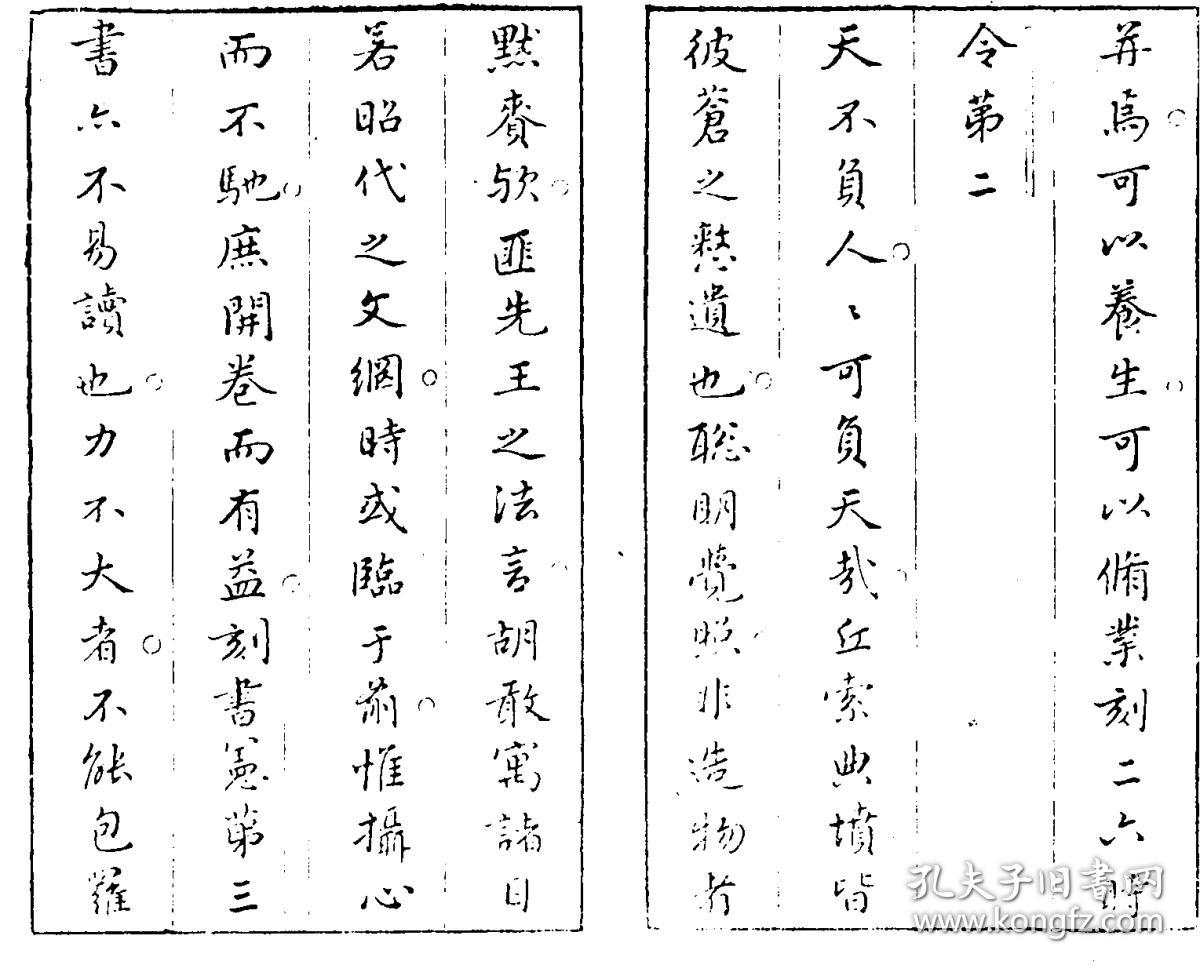 并焉可以養生可以脩業刻二六時
令第二
天不負人〻可負天哉丘索典墳皆
彼蒼之憖遺也聡明覺照非造物者
默賚欤匪先王之法言胡敢寓諸目
若昭代之文網時或臨于前惟攝心
而不馳庶開卷而有益刻書憲第三
書亦不易讀也力不大者不能包羅
孔夫子旧書网
www.kongfz.com